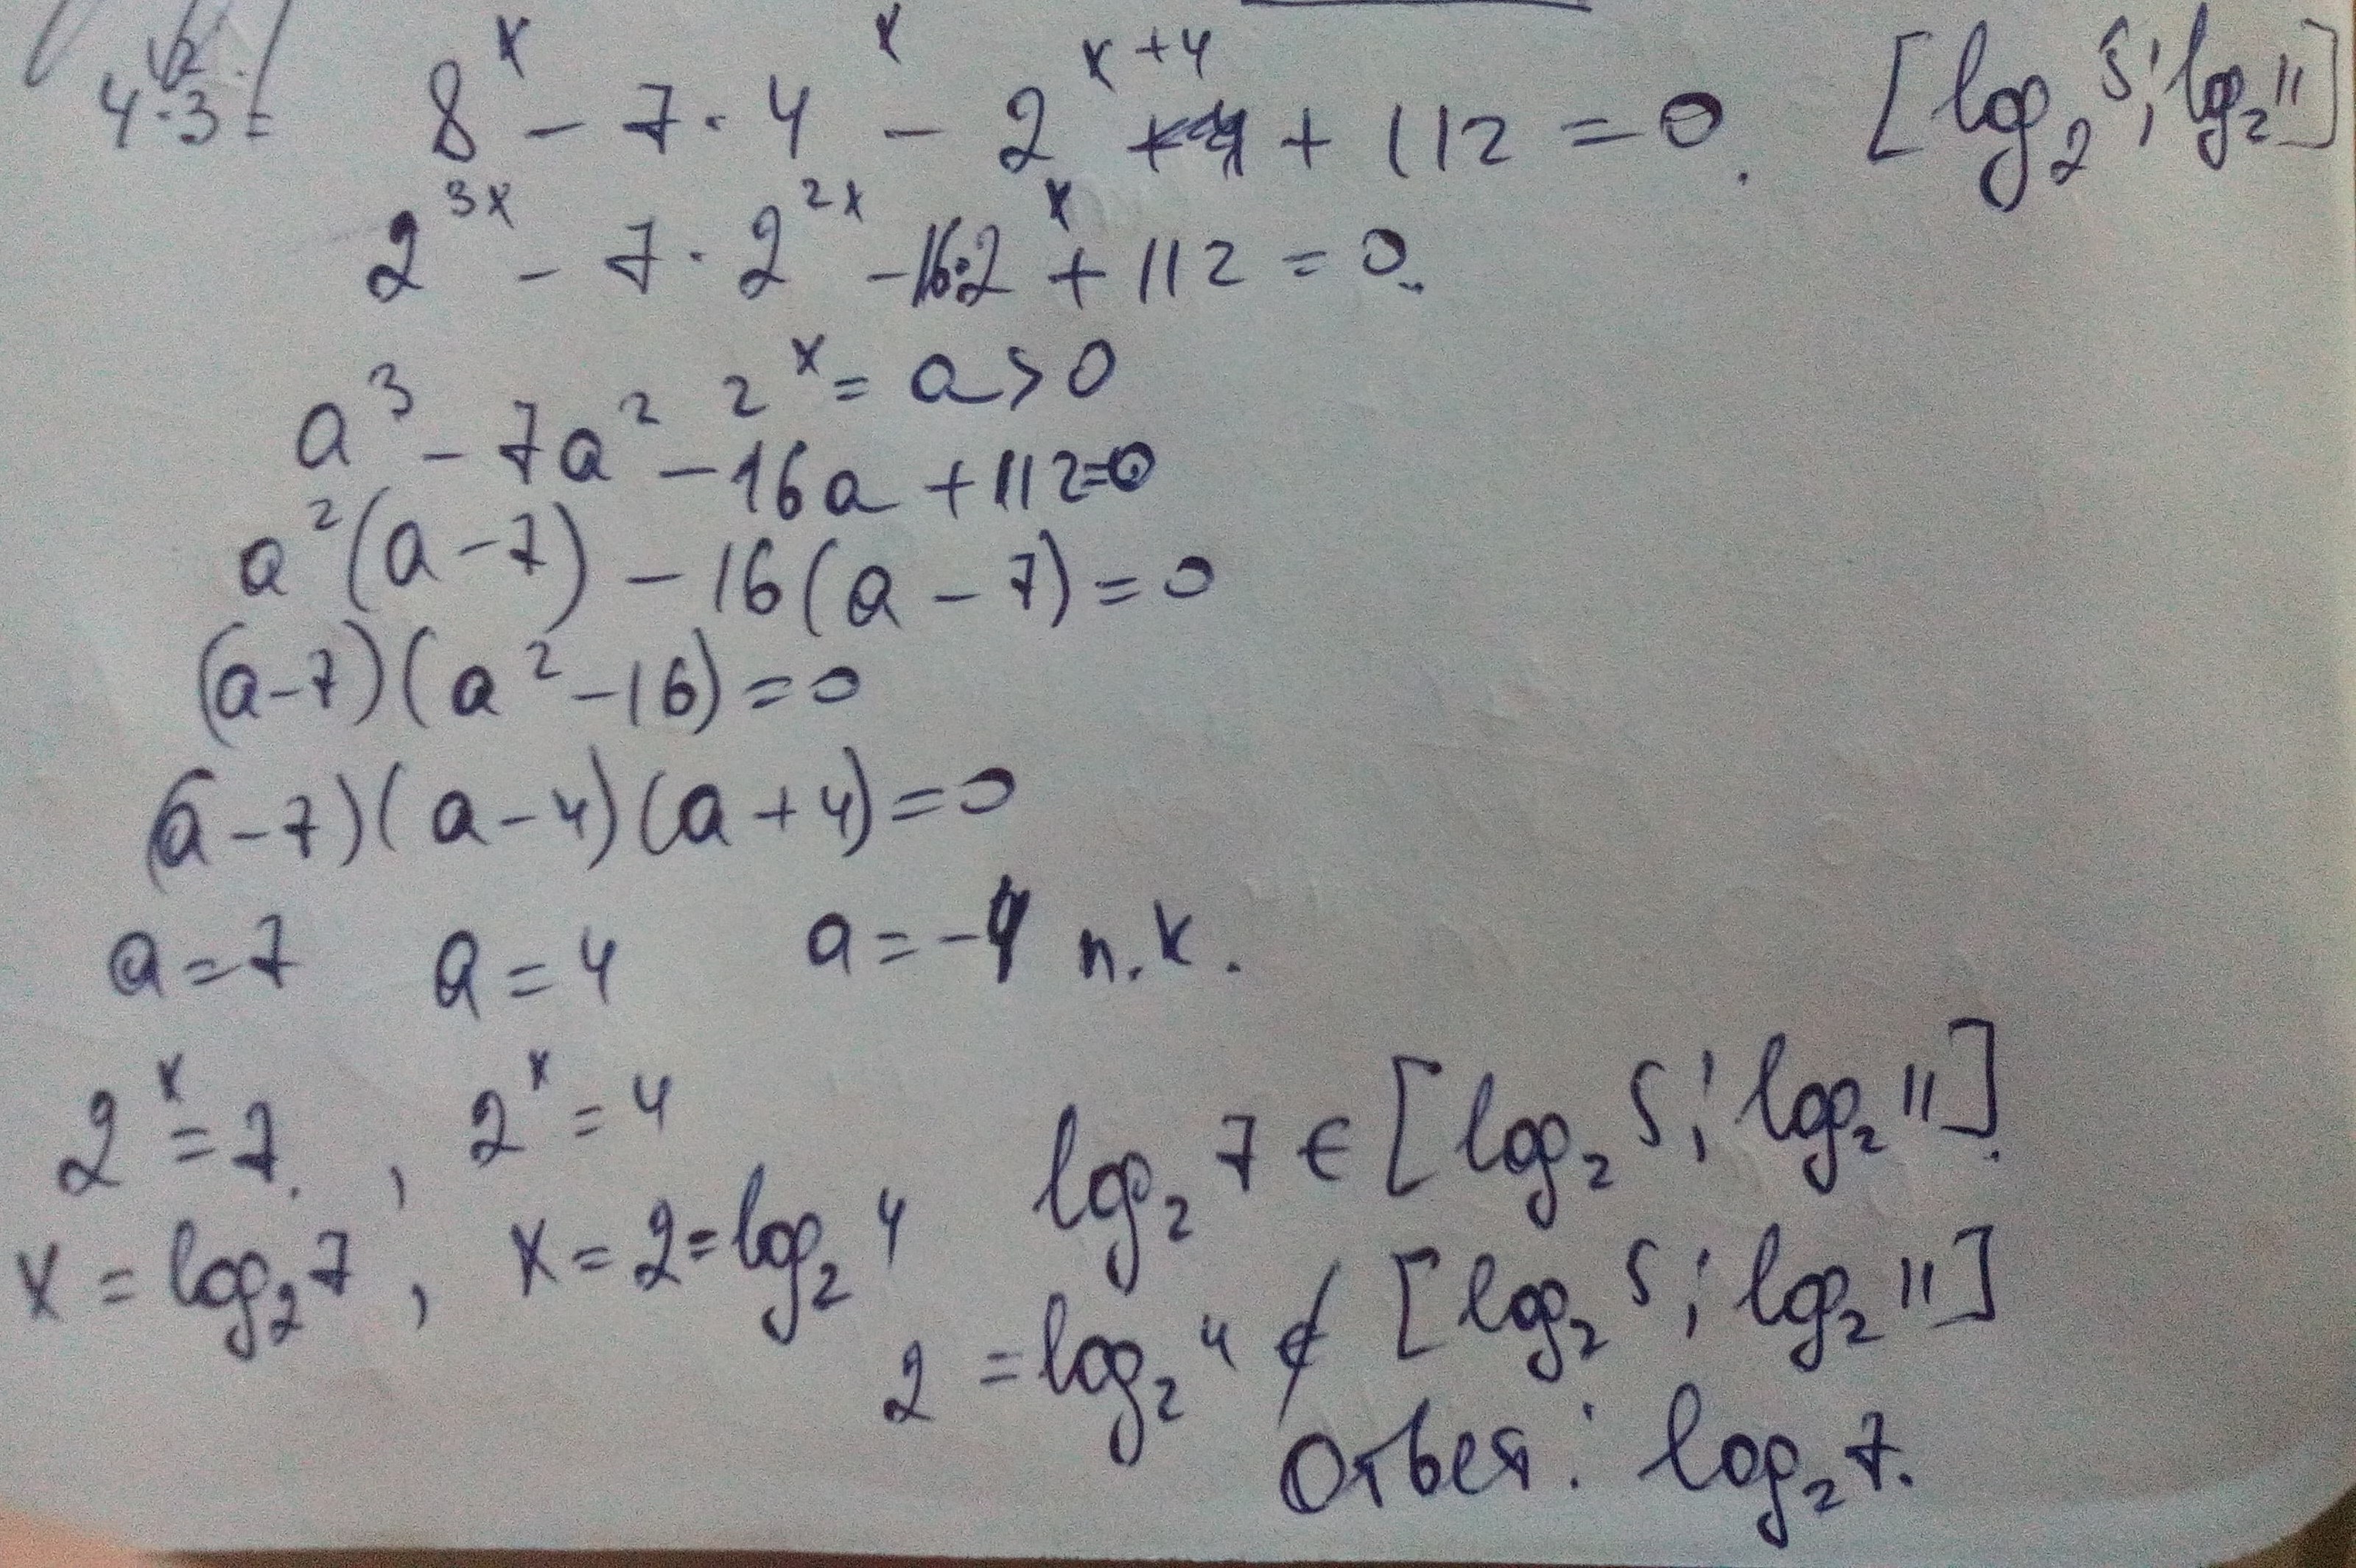 4·3=
8^x - 7·4^x - 2^{x+4} + 112 = 0. [log₂5; log₂11]
2^{3x} - 7·2^{2x} - 16·2^x + 112 = 0.
2^x = a > 0
a³ - 7a² - 16a + 112 = 0
a²(a - 7) - 16(a - 7) = 0
(a - 7)(a² - 16) = 0
(a - 7)(a - 4)(a + 4) = 0
a = 7 a = 4 a = -4 п.к.
2^x = 7. , 2^x = 4
x = log₂7, x = 2 = log₂4
log₂7 ∈ [log₂5; log₂11].
2 = log₂4 ∉ [log₂5; log₂11]
Ответ: log₂7.